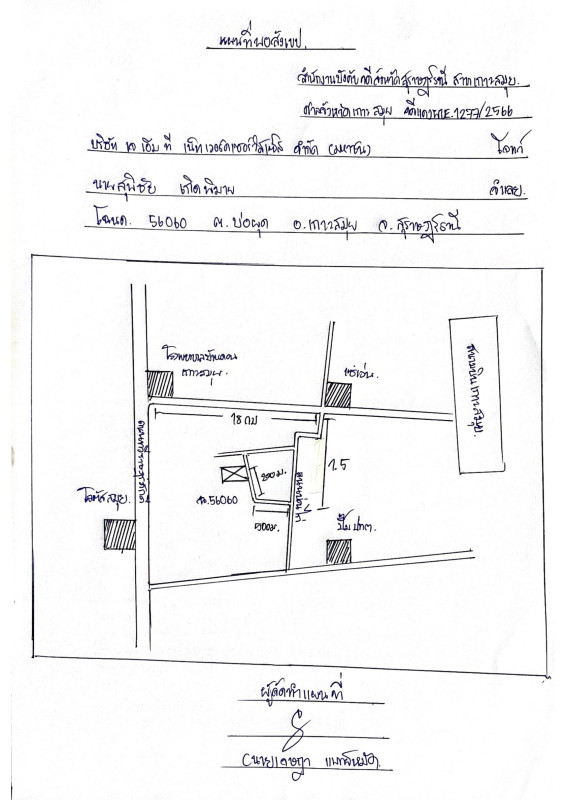 แผนที่พอสังเขป.
สำนักงานบังคับคดีจังหวัดสุราษฎร์ธานี สาขาเกาะสมุย.
ศาลจังหวัดเกาะสมุย คดีแดงที่ E.1277/2566
บริษัท เจ เอ็ม ที เน็ทเวอร์คเซอร์วิสเซ็ส จำกัด (มหาชน) โจทก์
นายสุพิชัย เกิดพิมาย จำเลย.
โฉนด. 56060 ต.บ่อผุด อ.เกาะสมุย จ.สุราษฎร์ธานี
โรงพยาบาลบ้านดอน
เกาะสมุย.
สนามบินเกาะสมุย.
18 กม
200 ม.
ฉ.56060
1.5
โลตัสสมุย.
ปั๊ม ปตท.
ผู้จัดทำแผนที่